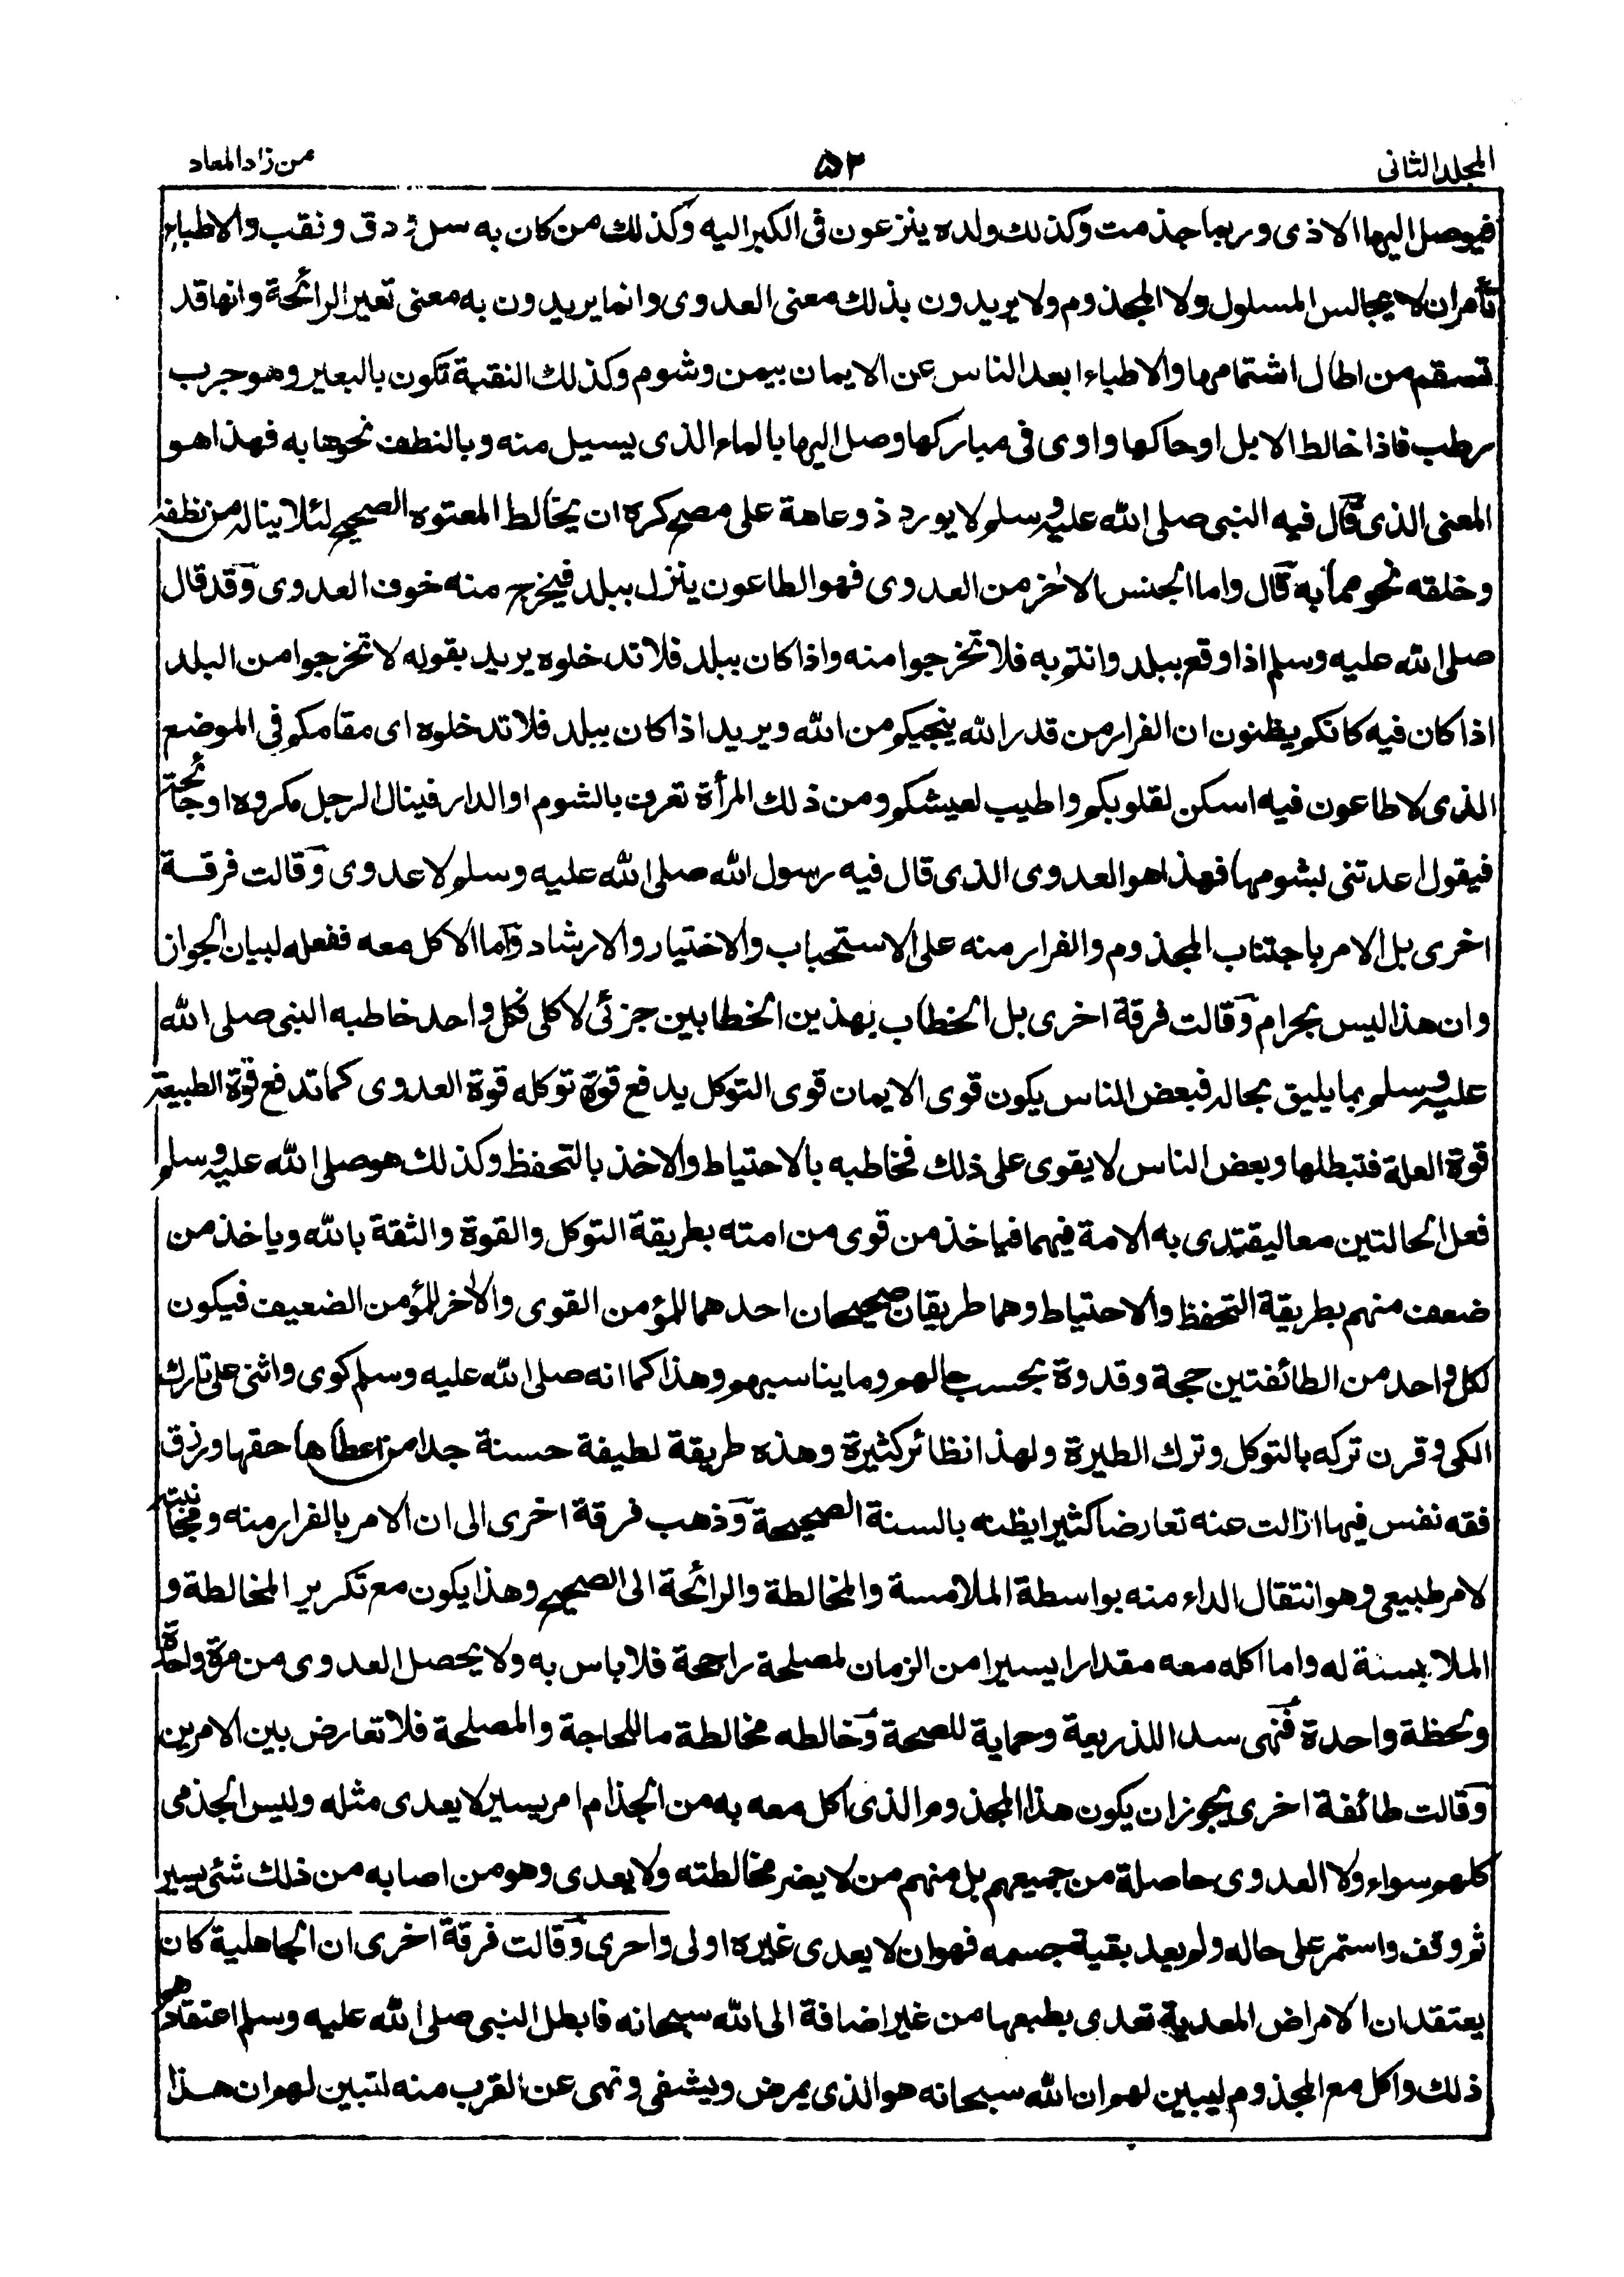 المجلد الثانى
۵۲
من زاد المعاد
فيوصل اليها الاذى وربما جذمت وكذلك ولده ينزعون فى الكبر اليه وكذلك من كان به سل ودق ونقب والاطباء
تأمران لا يجالس المسلول ولا المجذوم ولا يريدون بذلك معنى العدوى وانما يريدون به معنى تغير الرائحة وانها قد
تسقم من اطال اشتمامها والاطباء ابعد الناس عن الايمان بيمن وشوم وكذلك النقبة تكون بالبعير وهو جرب
رطب فاذا خالط الابل او حاكها واوى فى مباركها وصل اليها بالماء الذى يسيل منه وبالنطف نحوها به فهذا هو
المعنى الذى قال فيه النبى صلى الله عليه وسلم لا يورد ذو عاهة على مصح كره ان يخالط المعتوه الصحيح لئلا يناله من نظفه
وخلقه نحو مما به قال واما الجنس الاخر من العدوى فهو الطاعون ينزل ببلد فيخرج منه خوف العدوى وقد قال
صلى الله عليه وسلم اذا وقع ببلد وانتم به فلا تخرجوا منه واذا كان ببلد فلا تدخلوه يريد بقوله لا تخرجوا من البلد
اذا كان فيه كانكم يظنون ان الفرار من قدر الله ينجيكم من الله ويريد اذا كان ببلد فلا تدخلوه اى مقامكم فى الموضع
الذى لا طاعون فيه اسكن لقلوبكم واطيب لعيشكم ومن ذلك المرأة تعرف بالشوم او الدار فينال الرجل مكروه او جائحة
فيقول اعدتنى بشومها فهذا هو العدوى الذى قال فيه رسول الله صلى الله عليه وسلم لا عدوى وقالت فرقة
اخرى بل الامر باجتناب المجذوم والفرار منه على الاستحباب والاختيار والارشاد واما الاكل معه ففعله لبيان الجواز
وان هذا ليس بحرام وقالت فرقة اخرى بل الخطاب بهذين الخطابين جزئى لا كلى فكل واحد خاطبه النبى صلى الله
عليه وسلم بما يليق بحاله فبعض الناس يكون قوى الايمان قوى التوكل يدفع قوة توكله قوة العدوى كما تدفع قوة الطبيعة
قوة العلة فتبطلها وبعض الناس لا يقوى على ذلك فخاطبه بالاحتياط والاخذ بالتحفظ وكذلك هو صلى الله عليه وسلم
فعل الحالتين معا ليقتدى به الامة فيهما فياخذ من قوى من امته بطريقة التوكل والقوة والثقة بالله وياخذ من
ضعف منهم بطريقة التحفظ والاحتياط وهما طريقان صحيحان احدهما للمؤمن القوى والاخر للمؤمن الضعيف فيكون
لكل واحد من الطائفتين حجة وقدوة بحسب حالهم وما يناسبهم وهذا كما انه صلى الله عليه وسلم كوى واثنى على تارك
الكى وقرن تركه بالتوكل وترك الطيرة ولهذا نظائر كثيرة وهذه طريقة لطيفة حسنة جدا من اعطاها حقها ورزق
فقه نفس فيها ازالت عنه تعارضا كثيرا يظنه بالسنة الصحيحة وذهب فرقة اخرى الى ان الامر بالفرار منه ومجانبته
لامر طبيعى وهو انتقال الداء منه بواسطة الملامسة والمخالطة والرائحة الى الصحيح وهذا يكون مع تكرير المخالطة و
الملابسة له واما اكله معه مقدارا يسيرا من الزمان لمصلحة راجحة فلا باس به ولا يحصل العدوى من مرة واحدة
ولحظة واحدة فنهى سدا للذريعة وحماية للصحة وخالطه مخالطة ما للحاجة والمصلحة فلا تعارض بين الامرين
وقالت طائفة اخرى يجوز ان يكون هذا المجذوم الذى اكل معه به من الجذام امر يسير لا يعدى مثله وليس الجذمى
كلهم سواء ولا العدوى حاصلة من جميعهم بل منهم من لا يضر مخالطته ولا يعدى وهو من اصابه من ذلك شئ يسير
ثم وقف واستمر على حاله ولم يعد بقية جسمه فهو ان لا يعدى غيره اولى واحرى وقالت فرقة اخرى ان الجاهلية كان
يعتقد ان الامراض المعدية تعدى بطبعها من غير اضافة الى الله سبحانه فابطل النبى صلى الله عليه وسلم اعتقادهم
ذلك واكل مع المجذوم ليبين لهم ان الله سبحانه هو الذى يمرض ويشفى ونهى عن القرب منه لتبين لهم ان هذا